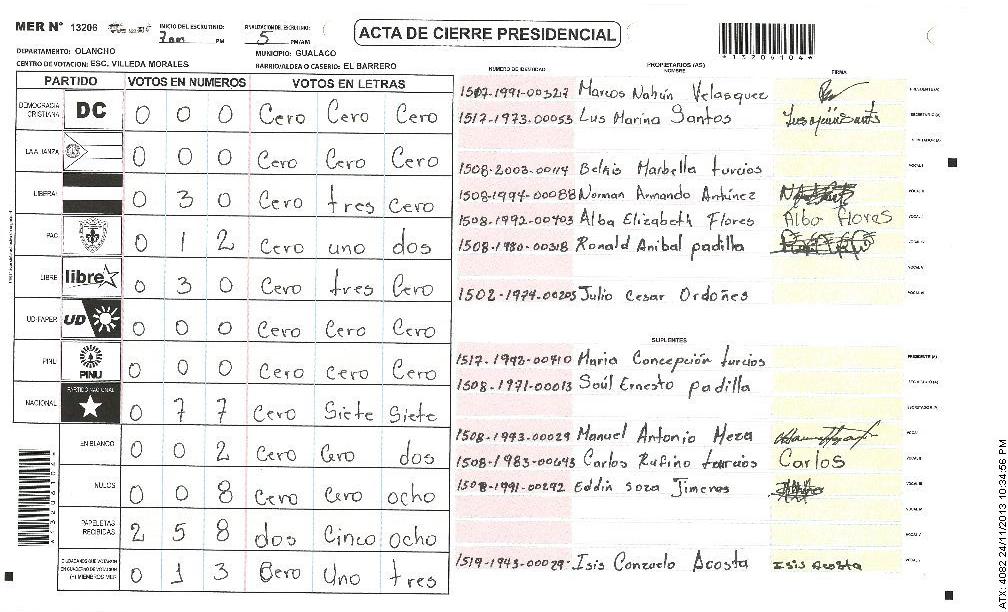 MER N° 13206 INICIO DEL ESCRUTINIO: FINALIZACION DEL ESCRUTINIO: ACTA DE CIERRE PRESIDENCIAL
7 am PM 5 PM/AM
DEPARTAMENTO: OLANCHO MUNICIPIO: GUALACO *13206104*
CENTRO DE VOTACION: ESC. VILLEDA MORALES BARRIO/ALDEA O CASERIO: EL BARRERO
NUMERO DE IDENTIDAD PROPIETARIOS (AS) NOMBRE FIRMA
PARTIDO VOTOS EN NUMEROS VOTOS EN LETRAS
DEMOCRACIA CRISTIANA DC 0 0 0 Cero Cero Cero
LA ALIANZA 0 0 0 Cero Cero Cero
LIBERAL 0 3 0 Cero tres cero
PAC 0 1 2 Cero uno dos
LIBRE libre 0 3 0 Cero tres Cero
UD-FAPER UD 0 0 0 Cero Cero Cero
PINU PINU 0 0 0 Cero Cero Cero
NACIONAL PARTIDO NACIONAL 0 7 7 Cero Siete Siete
EN BLANCO 0 0 2 Cero Cero dos
NULOS 0 0 8 Cero Cero ocho
PAPELETAS RECIBIDAS 2 5 8 dos Cinco ocho
CIUDADANOS QUE VOTARON EN CUADERNO DE VOTACION (+) MIEMBROS MER 0 1 3 Cero Uno tres
1507-1991-00327 Marcos Nahún Velasquez PRESIDENTE(A)
1517-1973-00053 Lus Marina Santos SECRETARIO(A)
1508-2003-00114 Belkis Marbella turcios VOCAL I
1508-1994-00088 Norman Armando Antúnez
1508-1992-00403 Alba Elizabeth Flores Alba flores
1508-1980-00318 Ronald Anibal padilla
1502-1974-00205 Julio Cesar Ordoñes
SUPLENTES
1517-1992-00410 Maria Concepción turcios PRESIDENTE (A)
1508-1971-00013 Saúl Ernesto padilla
1508-1993-00029 Manuel Antonio Meza
1508-1983-00643 Carlos Rufino turcios Carlos
1508-1991-00292 Eddin Soza Jimenes
1519-1943-00029 Isis Conzuelo Acosta Isis Acosta
*13206104*
ATX: 4082 24/11/2013 10:34:56 PM